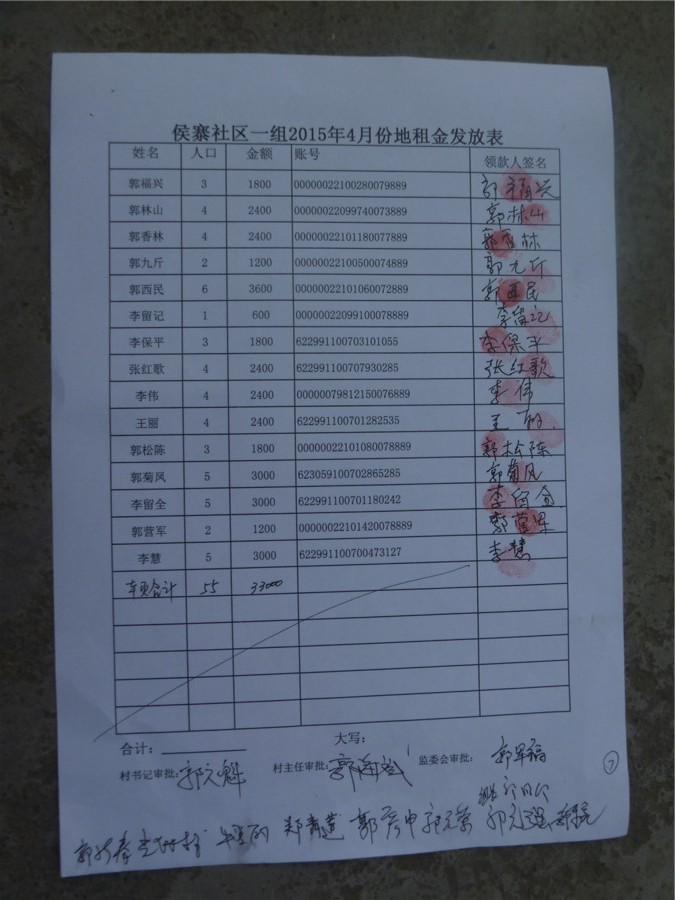 侯寨社区一组2015年4月份地租金发放表
姓名 人口 金额 账号 领款人签名
郭福兴 3 1800 00000022100280079889 郭福兴
郭林山 4 2400 00000022099740073889 郭林山
郭香林 4 2400 00000022101180077889 郭香林
郭九斤 2 1200 00000022100500074889 郭九斤
郭西民 6 3600 00000022101060072889 郭西民
李留记 1 600 00000022099100078889 李留记
李保平 3 1800 622991100703101055 李保平
张红歌 4 2400 622991100707930285 张红歌
李伟 4 2400 00000079812150076889 李伟
王丽 4 2400 622991100701282535 王丽
郭松陈 3 1800 00000022101080078889 郭松陈
郭菊风 5 3000 623059100702865285 郭菊风
李留全 5 3000 622991100701180242 李留全
郭营军 2 1200 00000022101420078889 郭营军
李慧 5 3000 622991100700473127 李慧
本页合计 55 33000
合计： 大写：
村书记审批: 郭文魁 村主任审批: 监委会审批: 郭军福
7